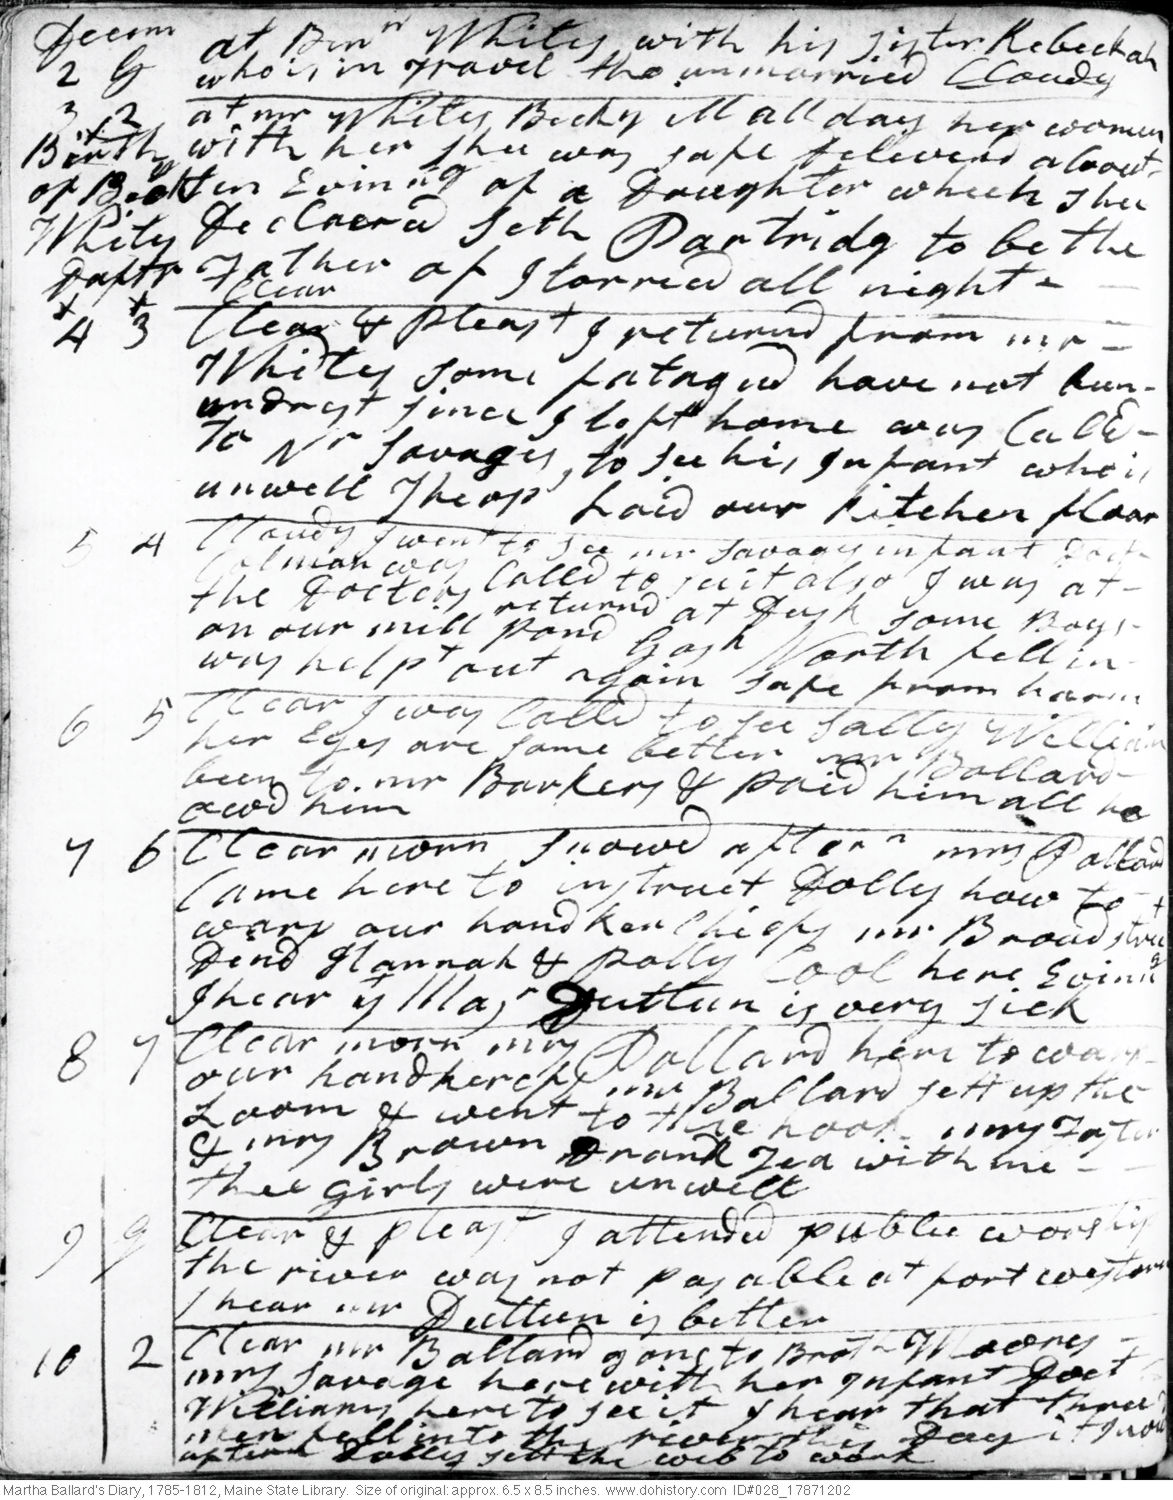 Decem at Benn Whites with his sister Rebeckah
2 G who is in Travel tho unmarried Cloudy
3 2 at mr Whites Becky ill all day her women
Birth with her shee was safe delivered about
of Beck ten Evining of a Daughter which shee
Whites Declared Seth Partridg to be the
Daftr Father of I tarried all night -
Clear
4 3 Clear & pleast I returnd from mr -
Whites some fatagud have not been -
undrest since I left home was Calld -
to Nr Savages, to see his Infant who is
unwell Theops laid our kitchen floor
5 4 Cloudy I went to see mr Savages infant Doct
Colman was Calld to see it also I was at -
the Doctors returnd at Dusk some Boys -
on our mill pond Gash North fell in -
was helpt out again safe from harm
6 5 Clear I was Calld to see Sally William
her Eyes are some better mr Ballard -
been to mr Barkers & paid him all he
owd him
7 6 Clear morn snowd aftern mrs Pollard
Came here to instruct Dolly how to
warp our hand kerchiefs mr Broad street
Dind Hannah & polly Cool here Evining
I hear ye Majr Duttun is very sick
8 7 Clear morn mrs Pollard here to warp
our handkerchf mr Ballard sett up the
Loom & went to the hook mrs Foster
& mrs Brown Drank Tea with me - -
thee Girls were unwell
9 G Clear & pleast I attended publick worship
the river was not pasable at fort western
I hear mr Duttun is better
10 2 Clear mr Ballard gone to Broth Moores -
mrs Savage here with her Infant Doct
Williams here to see it I hear that three
men fell into the river this Day it snowd
aftern Dolly sett the web to work
Martha Ballard's Diary, 1785-1812, Maine State Library. Size of original: approx. 6.5 x 8.5 inches. www.dohistory.com ID#028_17871202